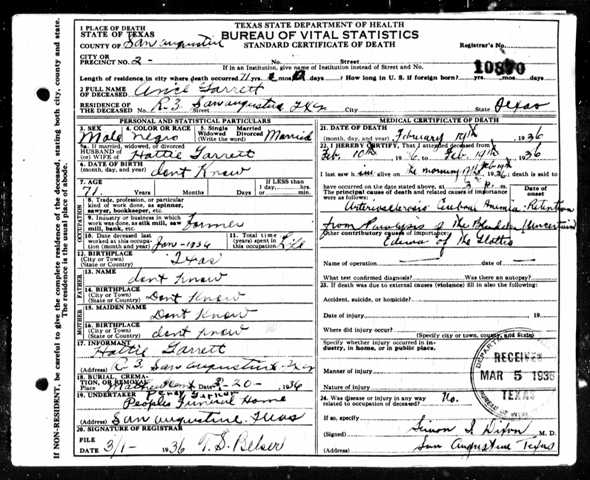 TEXAS STATE DEPARTMENT OF HEALTH
BUREAU OF VITAL STATISTICS
STANDARD CERTIFICATE OF DEATH
1 PLACE OF DEATH
STATE OF TEXAS
COUNTY OF San Augustine
Registrar's No.
CITY OR
PRECINCT NO. 2 - No. Street
10870
If in an Institution, give name of Institution instead of Street and No.
Length of residence in city where death occurred 71 yrs. mos. ds. How long in U. S. if foreign born? yrs. mos. ds.
2 FULL NAME
OF DECEASED Garrett
RESIDENCE OF
THE DECEASED No. R 3. San Augustine Tex Street City State Texas
PERSONAL AND STATISTICAL PARTICULARS
3. SEX Male
4. COLOR OR RACE negro
5. Single Married Widowed Divorced Married
5a. If married, widowed, or divorced
HUSBAND OF
(or) WIFE OF Hattie Garrett
6. DATE OF BIRTH
(month, day, and year) dont Know
7. AGE
71. Years Months Days
If LESS than
1 day, hours
min.
OCCUPATION
8. Trade, profession, or particular
kind of work done, as spinner,
sawyer, bookkeeper, etc.
9. Industry or business in which
work was done, as silk mill, saw
mill, bank, etc. Farmer
10. Date deceased last
worked at this occupa-
tion (month and year) Jan-1936
11. Total time
(years) spent in
this occupation. Life
12. BIRTHPLACE
(City or Town)
(State or Country) Texas
FATHER
13. NAME dont know
14. BIRTHPLACE
(City or Town)
(State or Country) Dont Know
MOTHER
15. MAIDEN NAME Dont Know
16. BIRTHPLACE
(City or Town)
(State or Country) dont know
17. INFORMANT Hattie Garrett
(Address) R 3 San Augustine Tex
18. BURIAL, CREMA-
TION, OR REMOVAL
Place Date 2-20- 1936
19. UNDERTAKER
Peoples Funeral Home
(Address) San Augustine, Texas
20. SIGNATURE OF REGISTRAR
FILE
DATE 3/1- 1936 T. S. Belser
MEDICAL CERTIFICATE OF DEATH
21. DATE OF DEATH
(month, day, and year) February 14th 1936
22. I HEREBY CERTIFY, That I attended deceased from
Feb. 10th 1936 to Feb. 14th 1936
I last saw him alive on the morning of Feb 14th 1936; death is said to
have occurred on the date stated above, at 3. P. m.
The principal cause of death and related causes of importance
were as follows:
Date of
onset
Arteriosclerosis Cerebral Anemia - Retention
from Paralysis of The Bladder (Uncertain)
Other contributory causes of importance:
Edema of The Glottis
Name of operation date of
What test confirmed diagnosis? Was there an autopsy?
23. If death was due to external causes (violence) fill in also the following:
Accident, suicide, or homicide?
Date of injury 19
Where did injury occur?
(Specify city or town, county, and State)
Specify whether injury occurred in in-
dustry, in home, or in public place.
Manner of injury
Nature of injury
RECEIVED
MAR 5 1936
TEXAS
24. Was disease or injury in any way
related to occupation of deceased? No.
If so, specify
(Signed) Simon S. Dixon M. D.
(Address) San Augustine Texas
IF NON-RESIDENT, be careful to give the complete residence of the deceased, stating both city, county and state.
The residence is the usual place of abode.